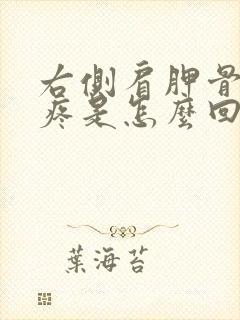 右側肩胛骨
疼是怎麼回
葉海苔